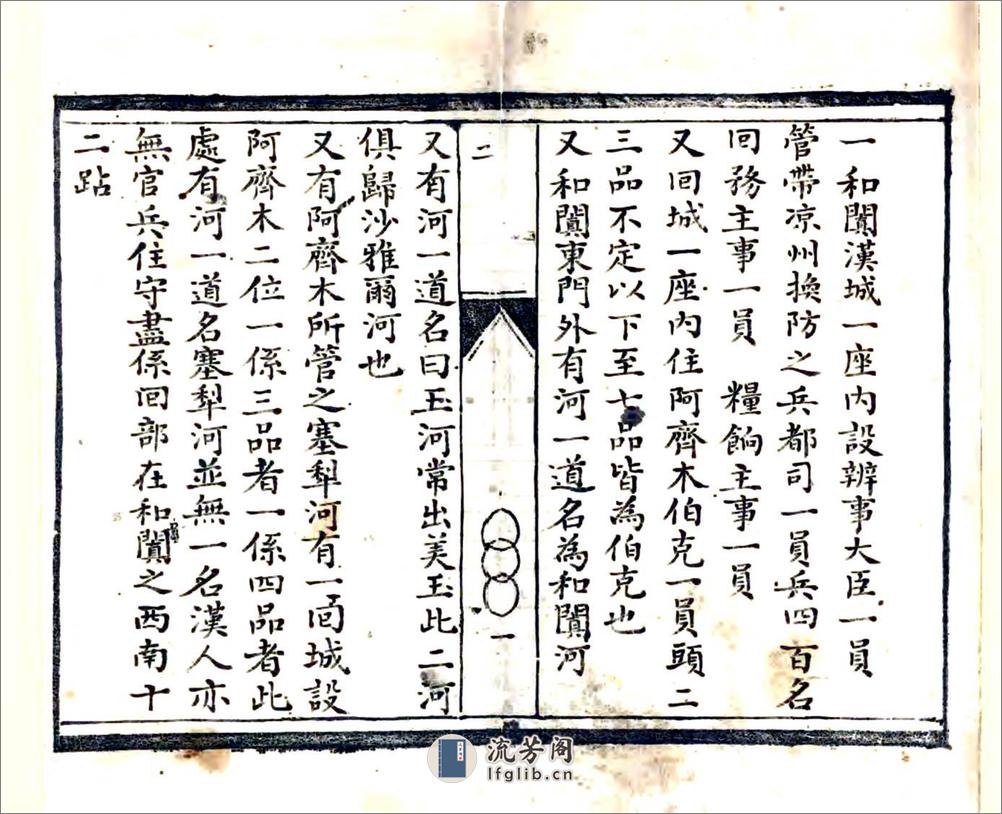 一和闐漢城一座內設辦事大臣一員
管帶凉州換防之兵都司一員兵四百名
回務主事一員　糧餉主事一員
又回城一座內住阿齊木伯克一員頭二
三品不定以下至七品皆為伯克也
又和闐東門外有河一道名為和闐河
二
一
又有河一道名曰玉河常出美玉此二河
俱歸沙雅爾河也
又有阿齊木所管之塞犁河有一回城設
阿齊木二位一係三品者一係四品者此
處有河一道名塞犁河並無一名漢人亦
無官兵住守盡係回部在和闐之西南十
二跕
流芳阁
lfglib.cn